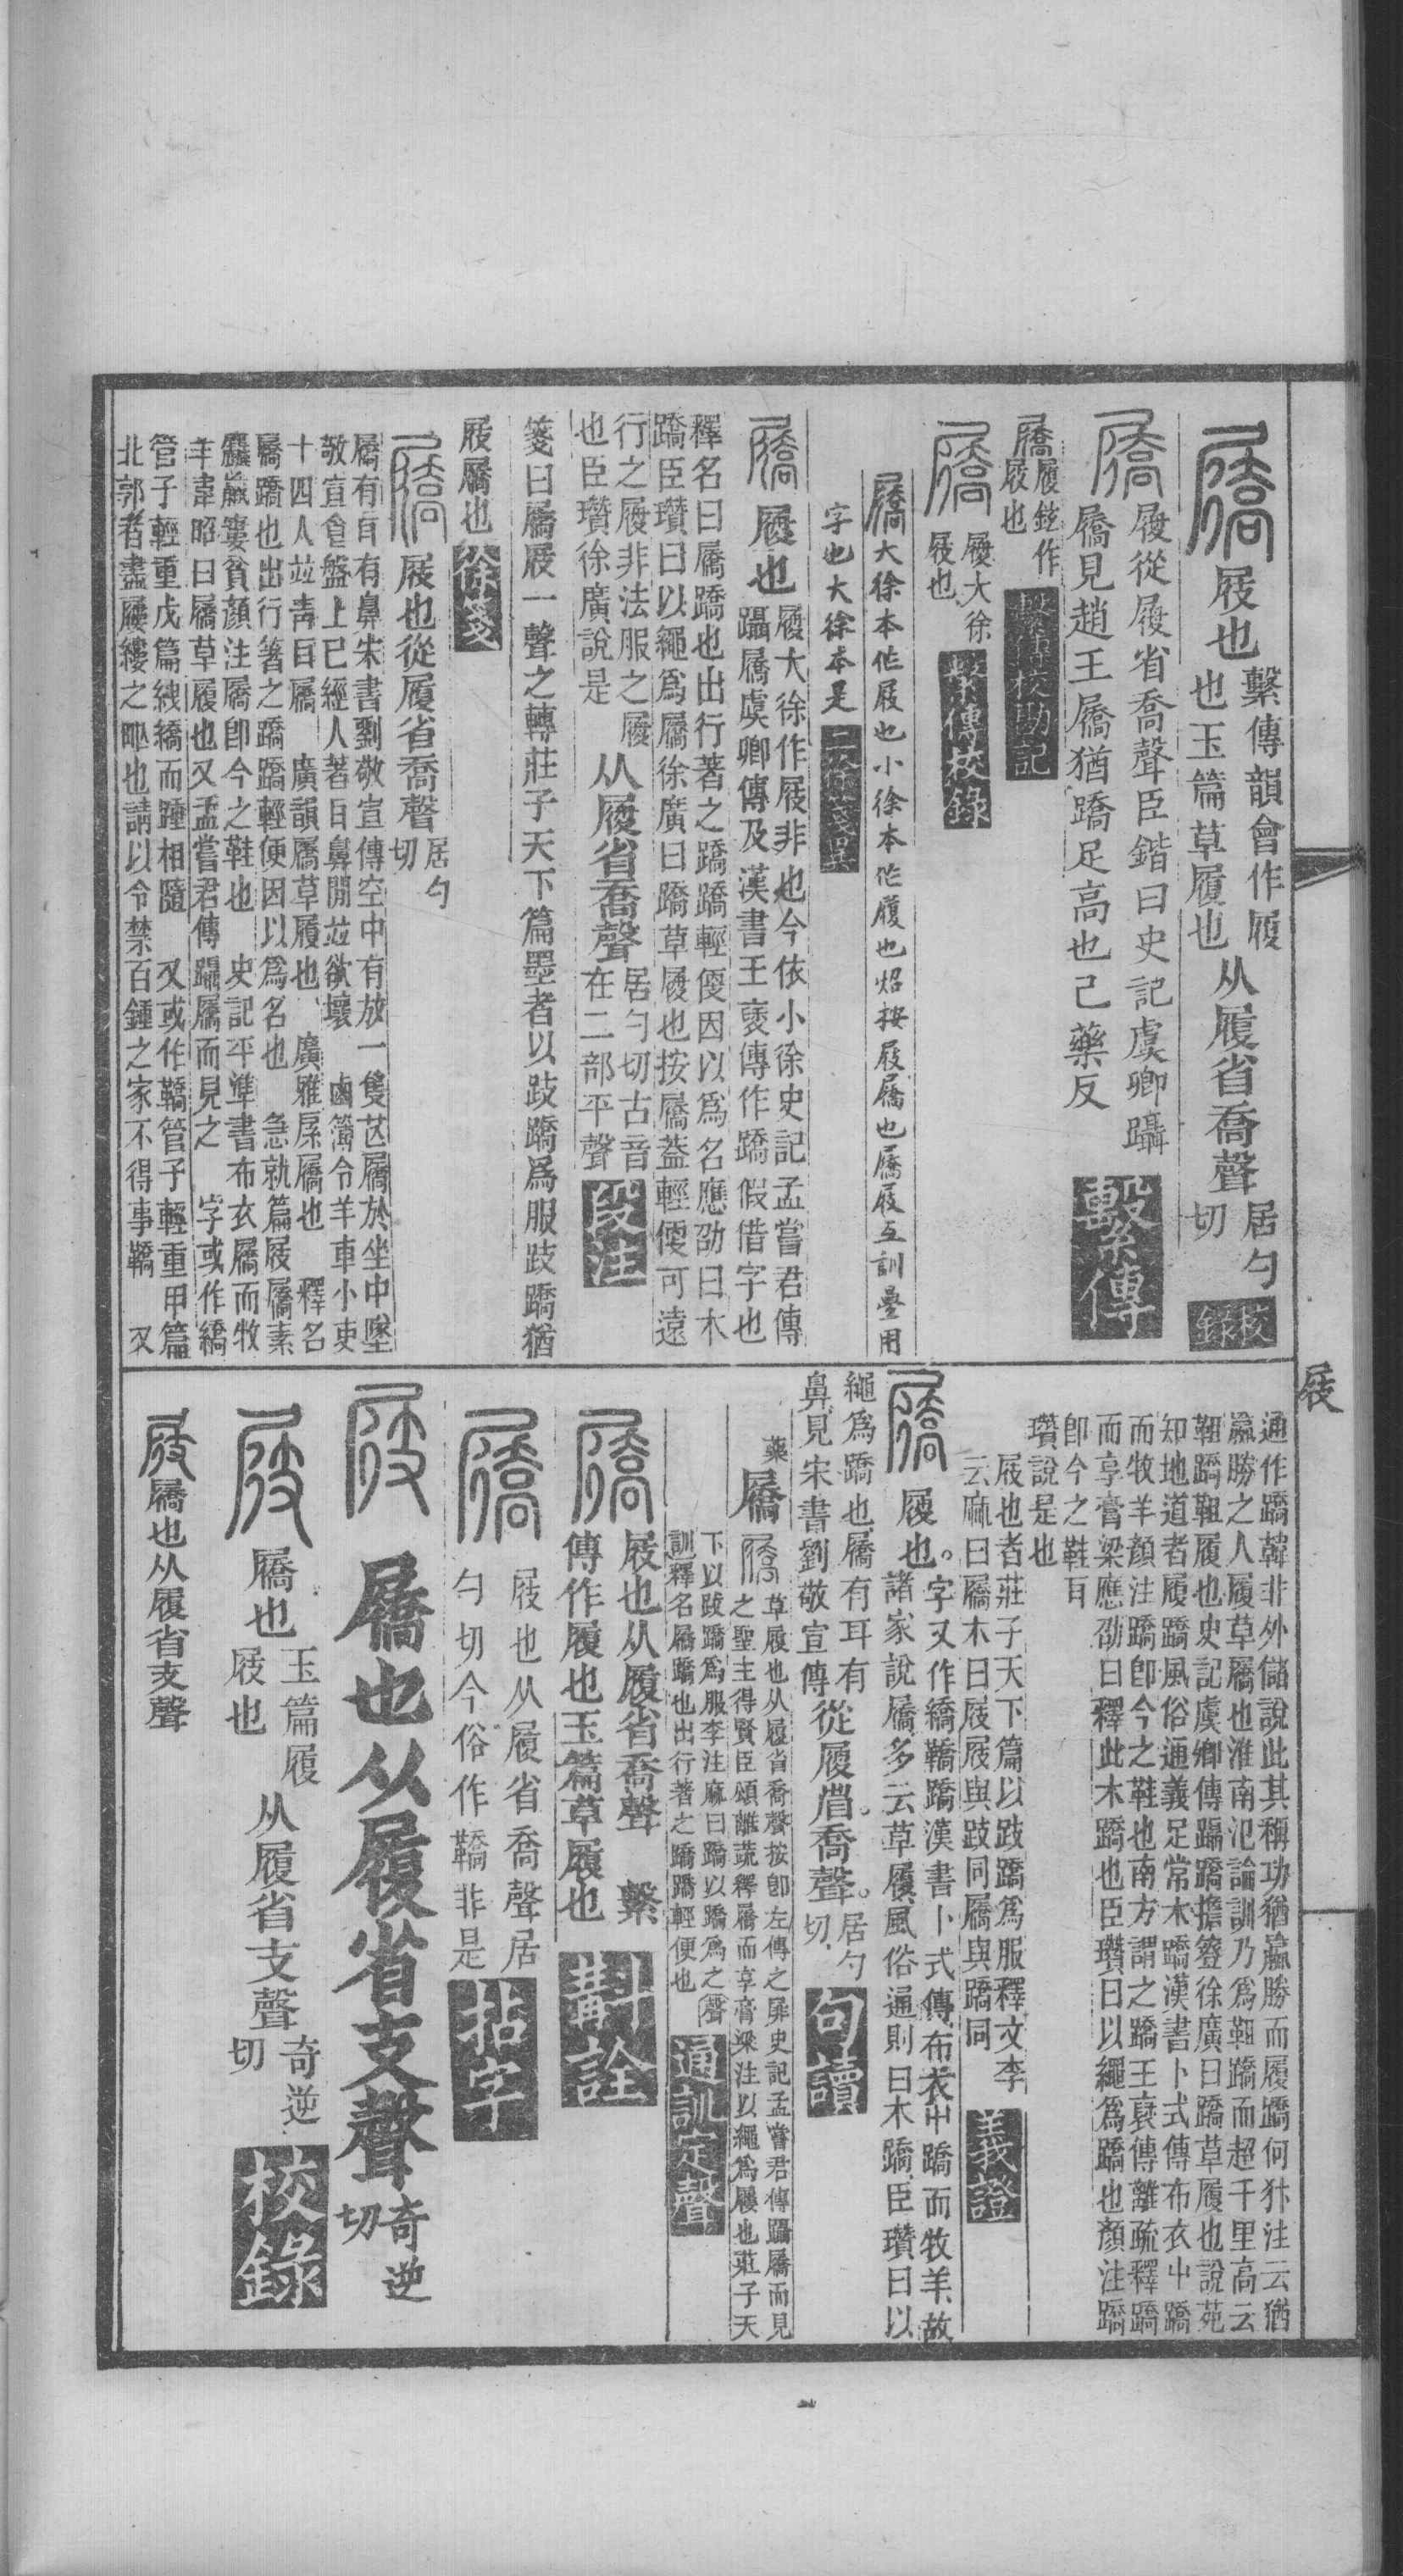 屐也
繫傳韻會作履
也玉篇草履也
从履省喬聲
居勺
切
校錄
履從履省喬聲臣鍇曰史記虞卿躡
屩見趙王屩猶蹻足高也己藥反
繫傳
屩
履鉉作
屐也
繫傳校勘記
履大徐
屐也
繫傳校錄
屩大徐本作屐也小徐本作履也炤按屐屩也屩屐互訓疊用
字也大徐本是
二徐箋異
履也
履大徐作屐非也今依小徐史記孟嘗君傳
躡屩虞卿傳及漢書王襃傳作蹻假借字也
釋名曰屩蹻也出行著之蹻蹻輕便因以爲名應劭曰木
蹻臣瓚曰以繩爲屩徐廣曰蹻草履也按屩蓋輕便可遠
行之履非法服之履
也臣瓚徐廣說是
从履省喬聲
居勺切古音
在二部平聲
段注
箋曰屩屐一聲之轉莊子天下篇墨者以跂蹻爲服跂蹻猶
屐屩也
徐箋
屐也從履省喬聲
居勺
切
屩有耳有鼻宋書劉敬宣傳空中有放一隻芒屩於坐中墜
敬宣食盤上已經人著耳鼻閒竝欲壞　鹵簿令羊車小吏
十四人竝靑耳屩　廣韻屩草履也　廣雅屟屩也　釋名
屩蹻也出行著之蹻蹻輕便因以爲名也　急就篇屐屩素
麤羸窶貧顏注屩卽今之鞋也　史記平準書布衣屩而牧
羊韋昭曰屩草履也又孟嘗君傳躡屩而見之　字或作繑
管子輕重戊篇紲繑而踵相隨　又或作鞽管子輕重甲篇
北郭者盡屨縷之甿也請以令禁百鍾之家不得事鞽　又
通作蹻韓非外儲說此其稱功猶羸勝而履蹻何犿注云猶
羸勝之人履草屩也淮南氾論訓乃爲靻蹻而超千里高云
靻蹻靻履也史記虞卿傳躡蹻擔簦徐廣曰蹻草履也說苑
知地道者履蹻風俗通義足常木蹻漢書卜式傳布衣屮蹻
而牧羊顏注蹻卽今之鞋也南方謂之蹻王襃傳離疏釋蹻
而享膏粱應劭曰釋此木蹻也臣瓚曰以繩爲蹻也顏注蹻
卽今之鞋耳
瓚說是也
屐也者莊子天下篇以跂蹻爲服釋文李
云麻曰屩木曰屐屐與跂同屩與蹻同
義證
履也。
字又作繑鞽蹻漢書卜式傳布衣屮蹻而牧羊、故
諸家說屩、多云草履、風俗通則曰木蹻、臣瓚曰以
繩爲蹻也、屩有耳有
鼻、見宋書劉敬宣傳
從履省。喬聲。
居勺
切、
句讀
藥
屩
草履也从履省喬聲按卽左傳之屝史記孟嘗君傳躡屩而見
之聖主得賢臣頌離蔬釋屩而享膏粱注以繩爲屨也莊子天
下以跂蹻爲服李注麻曰蹻以蹻爲之聲
訓釋名屩蹻也出行著之蹻蹻輕便也
通訓定聲
屐也从履省喬聲　繫
傳作履也玉篇草履也
斠詮
屐也从履省喬聲居
勺切今俗作鞽非是
拈字
屩也从履省支聲
奇逆
切
屩也
玉篇履
屐也
从履省支聲
奇逆
切
校錄
屩也从履省支聲
屐